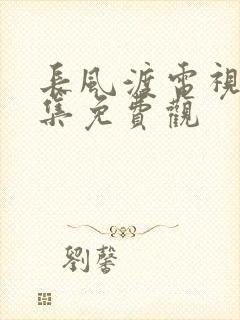 長風渡電視
集免費觀
劉馨